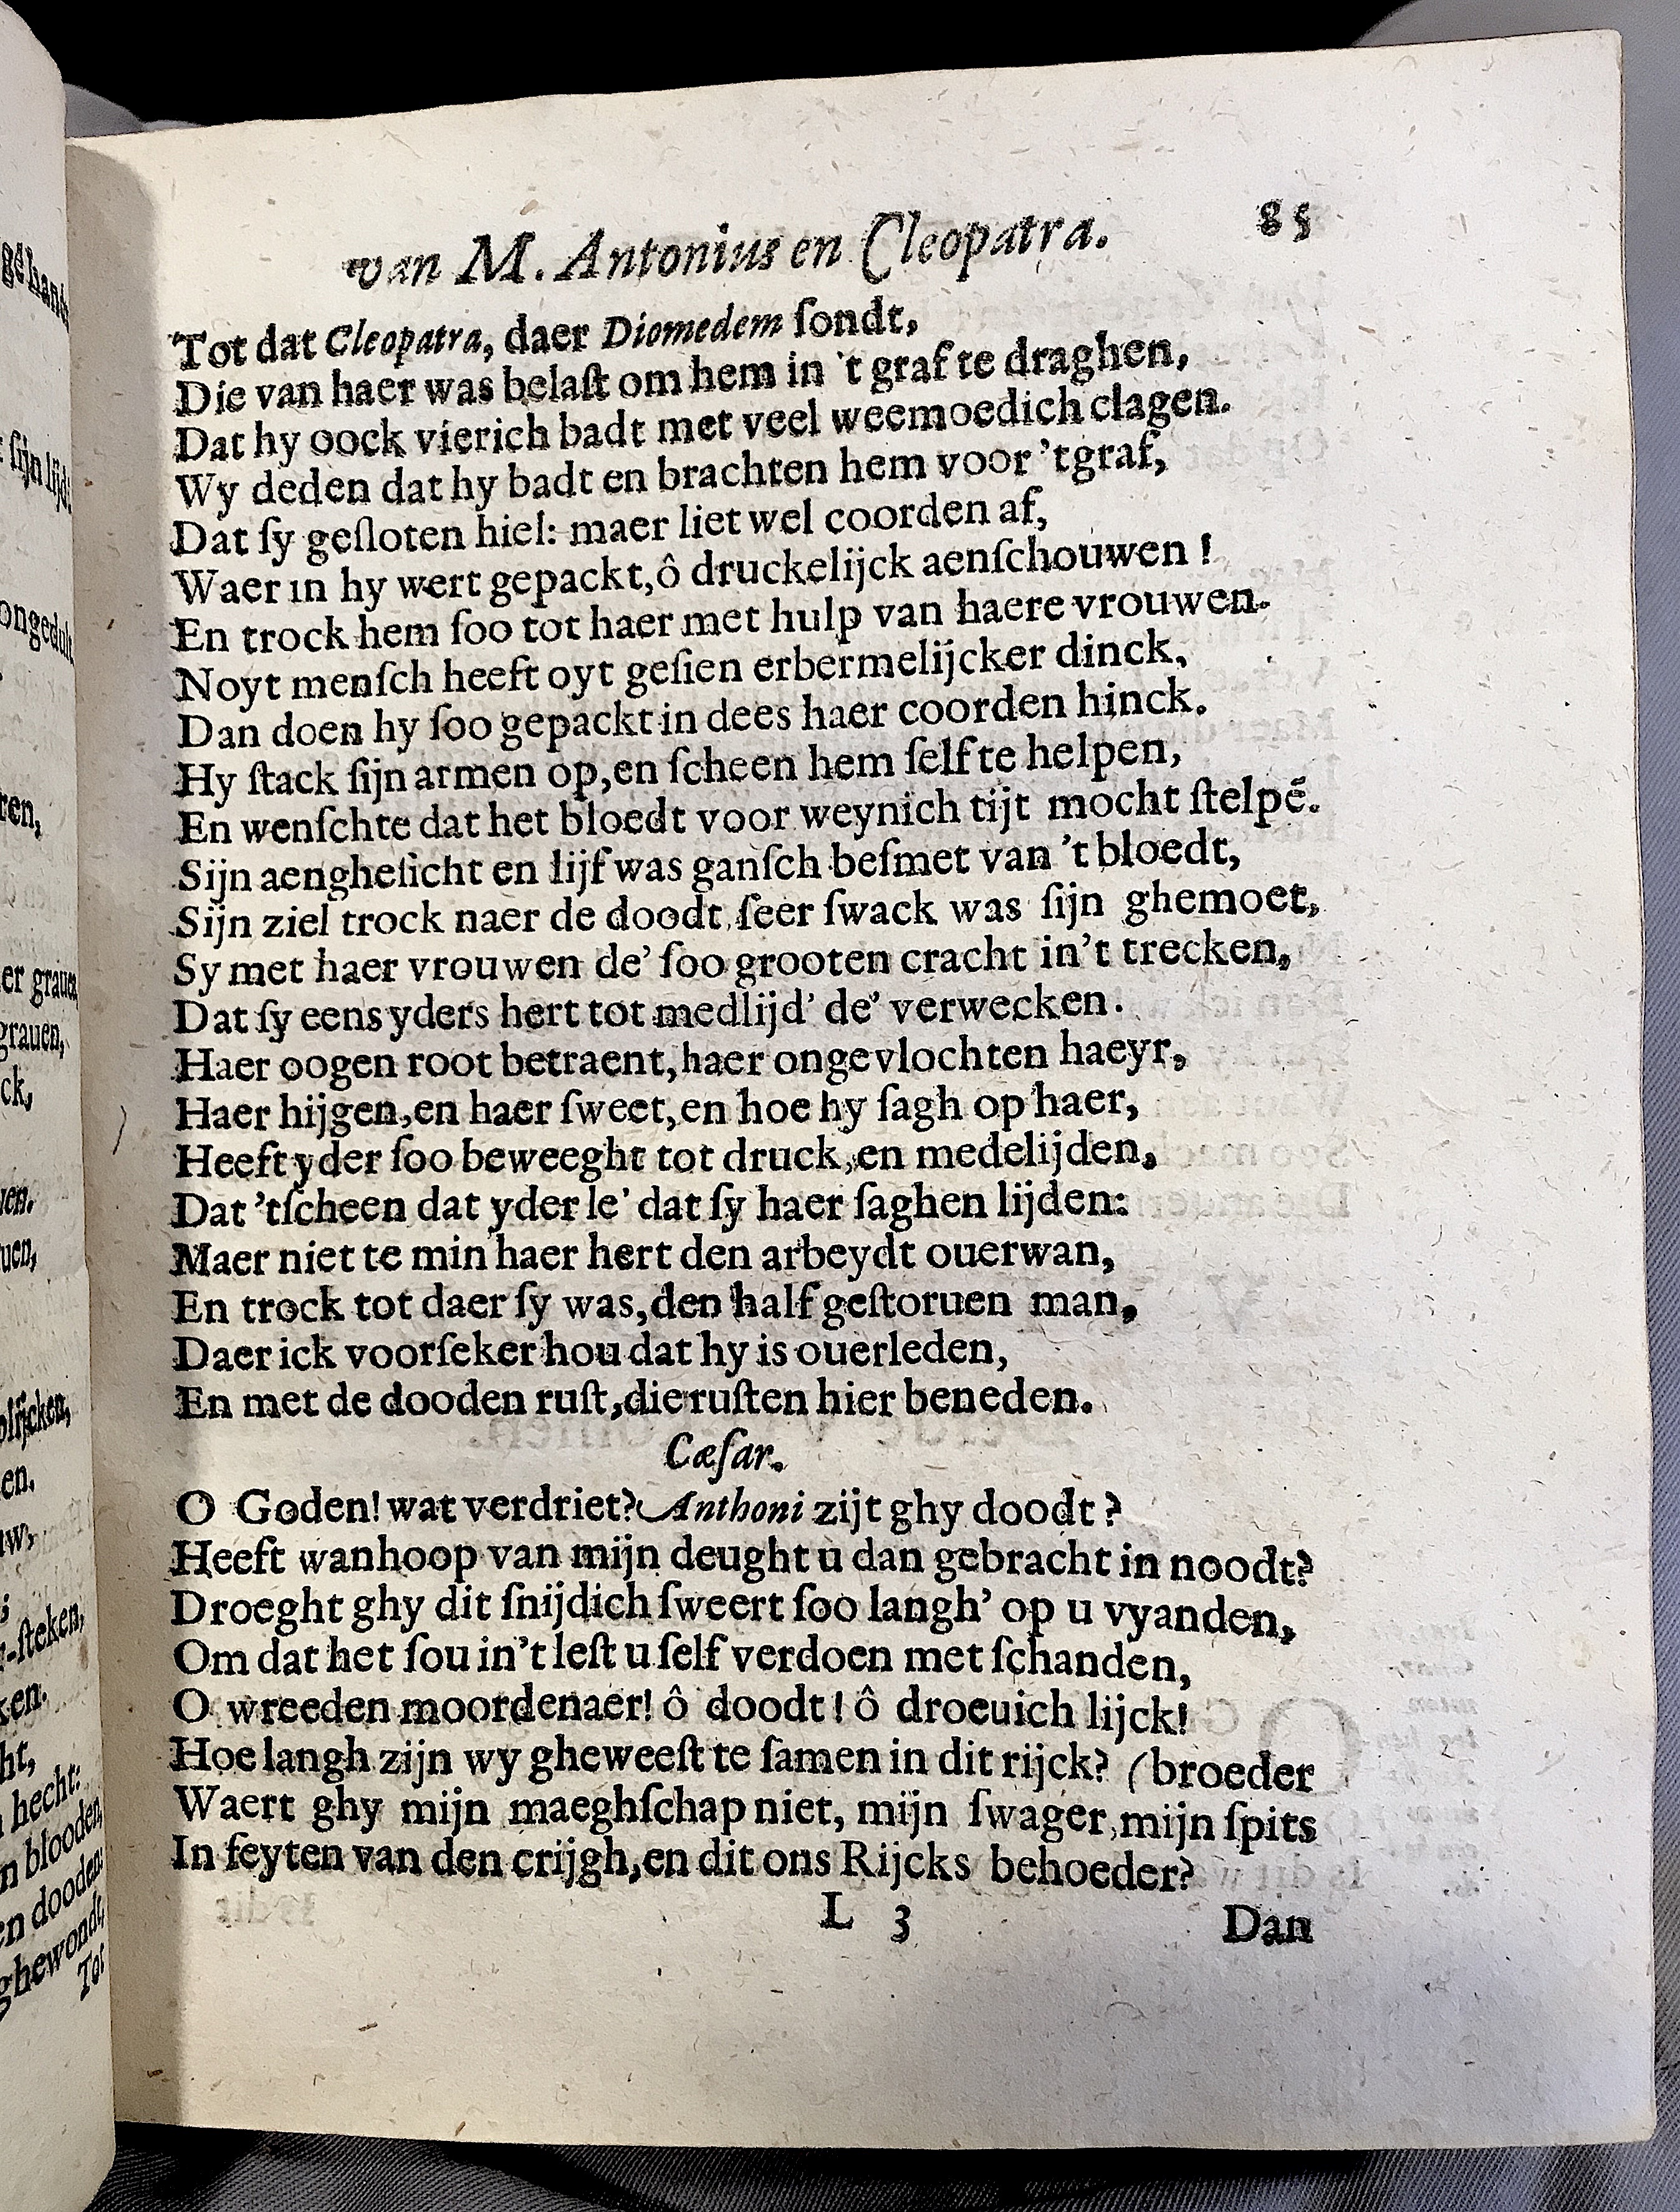 van M. Antonius en Cleopatra. 85
Tot dat Cleopatra, daer Diomedem ſondt,
Die van haer was belaſt om hem in 't graf te draghen,
Dat hy oock vierich badt met veel weemoedich clagen.
Wy deden dat hy badt en brachten hem voor 'tgraf,
Dat ſy geſloten hiel: maer liet wel coorden af,
Waer in hy wert gepackt, ô druckelijck aenſchouwen !
En trock hem ſoo tot haer met hulp van haere vrouwen.
Noyt menſch heeft oyt geſien erbermelijcker dinck,
Dan doen hy ſoo gepackt in dees haer coorden hinck.
Hy ſtack ſijn armen op, en ſcheen hem ſelf te helpen,
En wenſchte dat het bloedt voor weynich tijt mocht ſtelpẽ.
Sijn aengheſicht en lijf was ganſch beſmet van 't bloedt,
Sijn ziel trock naer de doodt, ſeer ſwack was ſijn ghemoet,
Sy met haer vrouwen de' ſoo grooten cracht in't trecken,
Dat ſy eens yders hert tot medlijd' de' verwecken.
Haer oogen root betraent, haer ongevlochten haeyr,
Haer hijgen, en haer ſweet, en hoe hy ſagh op haer,
Heeft yder ſoo beweeght tot druck, en medelijden,
Dat 'tſcheen dat yder le' dat ſy haer ſaghen lijden:
Maer niet te min haer hert den arbeydt ouerwan,
En trock tot daer ſy was, den half geſtoruen man,
Daer ick voorſeker hou dat hy is ouerleden,
En met de dooden ruſt, die ruſten hier beneden.
Cæſar.
O Goden! wat verdriet? Anthoni zijt ghy doodt ?
Heeft wanhoop van mijn deught u dan gebracht in noodt?
Droeght ghy dit ſnijdich ſweert ſoo langh' op u vyanden,
Om dat het ſou in't leſt u ſelf verdoen met ſchanden,
O wreeden moordenaer! ô doodt ! ô droeuich lijck!
Hoe langh zijn wy gheweeſt te ſamen in dit rijck? (broeder
Waert ghy mijn maeghſchap niet, mijn ſwager, mijn ſpits
In feyten van den crijgh, en dit ons Rijcks behoeder?
L 3 Dan